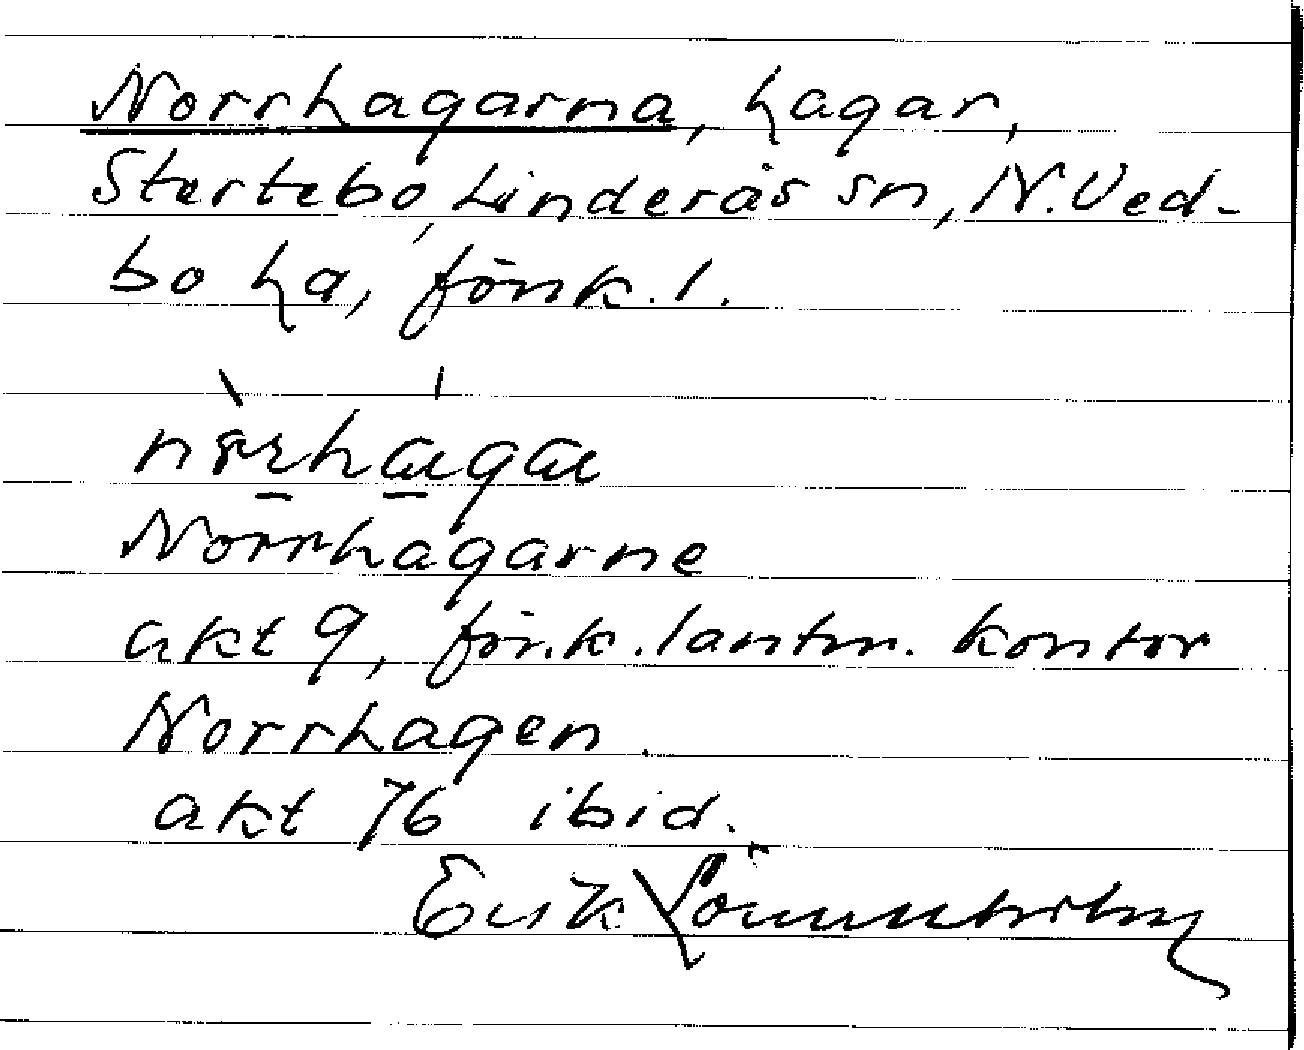 Norrhagarna, hagar,
Startebo, Linderås sn, N. Ved-
bo hd, förik. 1.
Norrhagarne
akt 9, för.k. lantm. kontor
Norrhagen
akt 76 ibid.
Erik